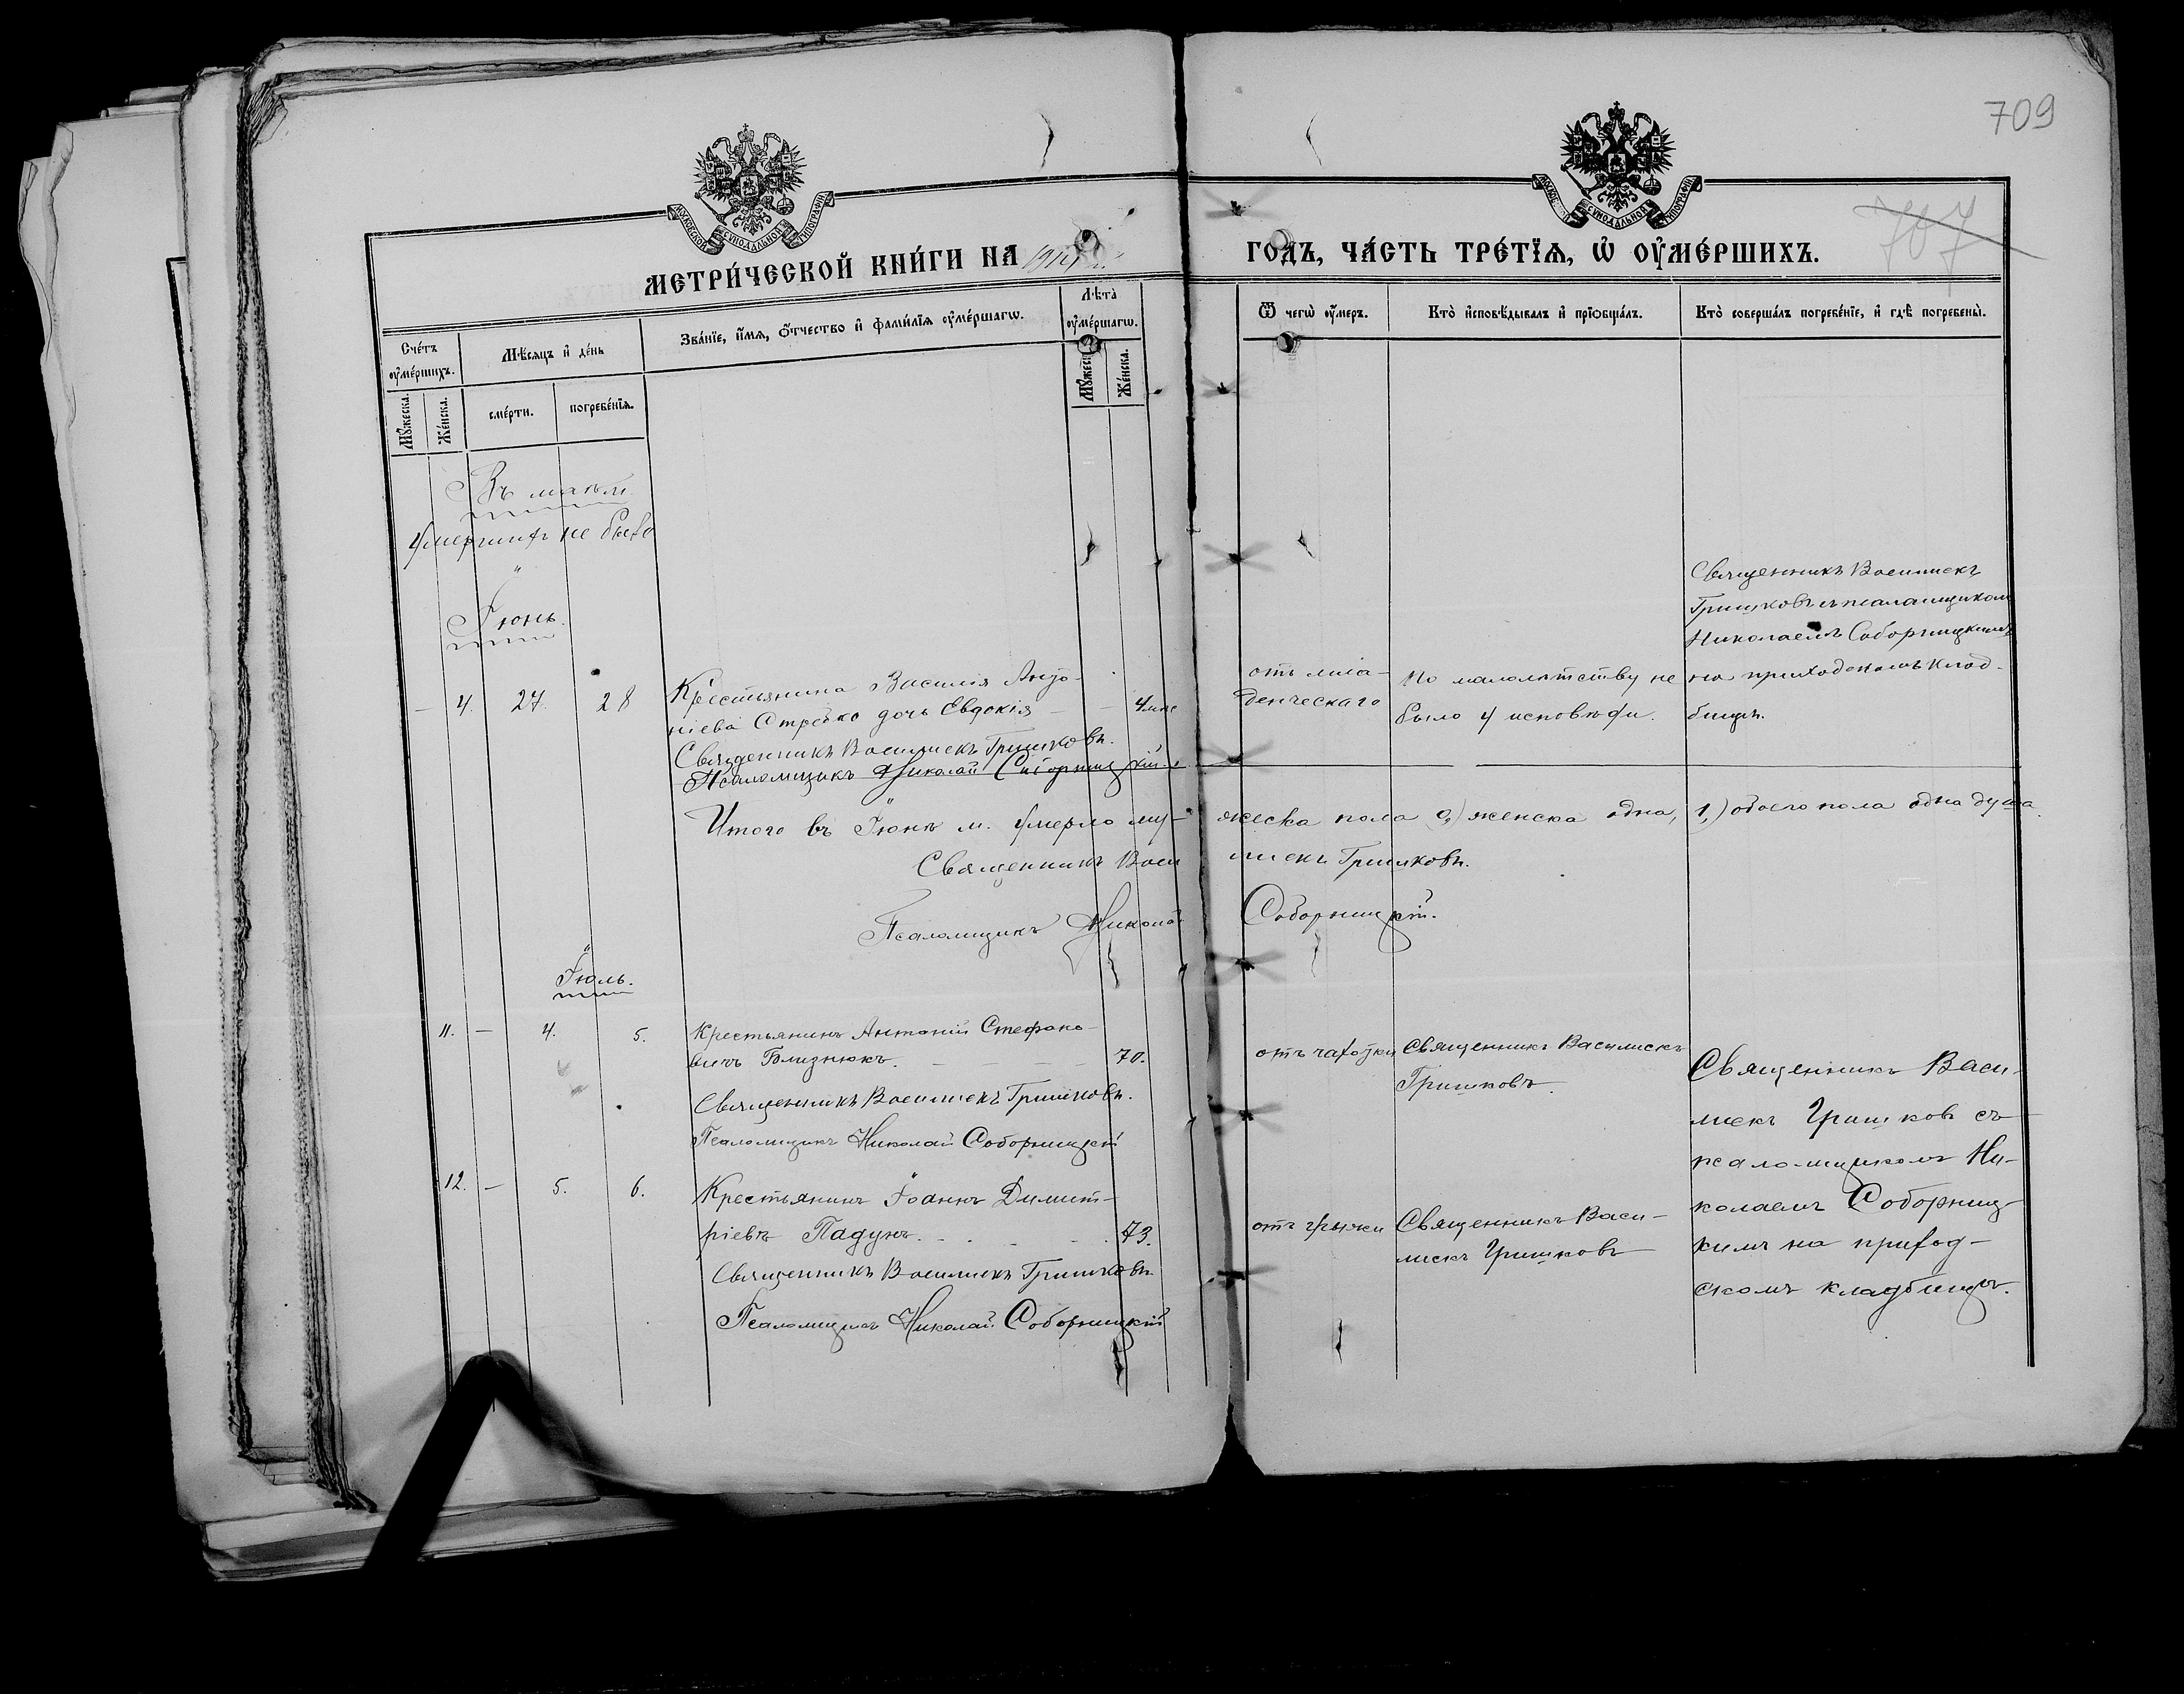 709
707
МОСКОВСКОЙ СѴНОДАЛЬНОЙ ТИПОГРАФІИ
МЕТРИ́ЧЕСКОЙ КНИ́ГИ НА
ГОДЪ, ЧА́СТЬ ТРЕ́ТІЯ, Ѡ҆ ОУ҆МЕ́РШИХЪ.
Сче́тъ оу҆ме́ршихъ.
Мꙋ́жеска.
Же́нска.
Мѣ́сяцъ и҆ де́нь
сме́рти.
погребе́нїѧ.
Зва́нїе, и҆́мѧ, ѻ҆́тчество и҆ фами́лїѧ оу҆ме́ршагѡ.
Лѣ́та оу҆ме́ршагѡ.
Же́нска.
Ѿ чегѡ̀ оу҆́меръ.
Кто̀ и҆сповѣ́дывалъ и҆ прїѡбща́лъ.
Кто̀ соверша́лъ погребе́нїе, и҆ гдѣ̀ погребены̀.
Умершихъ не было
Іюнь.
— 4. 27. 28 Крестьянина Василія Анто-
ніева Стрейко дочь Евдокія — — 4 мѣс
Священникъ Василискъ Гришковъ.
Псаломщикъ Николай Соборницкій.
отъ мла-
денческаго
По малолѣтству не
было у исповѣди.
Священникъ Василискъ
Гришковъ съ псаломщикомъ
Николаемъ Соборницкимъ
на приходскомъ клад-
бищѣ.
Итого въ Іюнѣ м. умерло му- жеска пола 0,) женска одна, 1,) обоего пола одна душа.
Священникъ Васи лискъ Гришковъ.
Псаломщикъ Николай Соборницкій.
Іюль.
11. — 4. 5. Крестьянинъ Антоній Стефано-
вичъ Близнюкъ. — — — 70.
Священникъ Василискъ Гришковъ.
Псаломщикъ Николай Соборницкій
отъ чахотки
Священникъ Василискъ
Гришковъ
12. — 5. 6. Крестьянинъ Іоаннъ Димит-
ріевъ Падунъ. 73.
Священникъ Василискъ Гришковъ.
Псаломщикъ Николай Соборницкій
отъ грыжи
Священникъ Васи-
лискъ Гришковъ
Священникъ Васи-
лискъ Гришковъ съ
псаломщикомъ Ни-
колаемъ Соборниц-
кимъ на приход-
скомъ кладбищѣ.